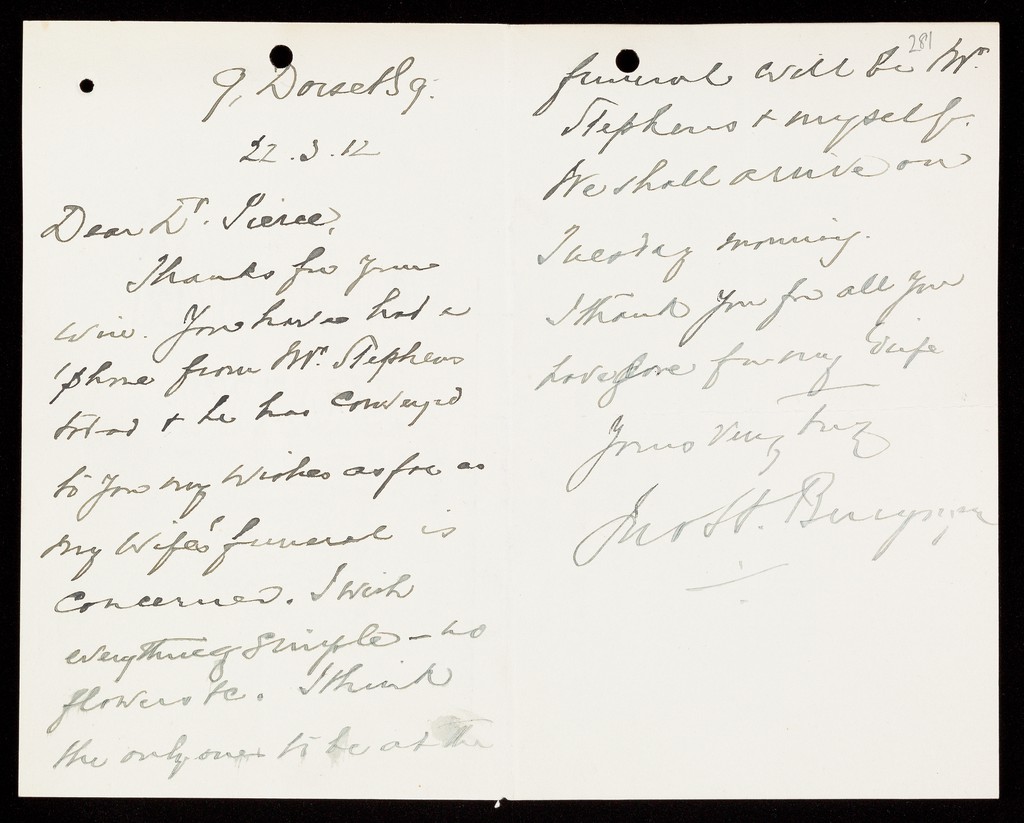 281
9, Dorset Sq.
22.3.12
Dear Dr. Pierce,
Thanks for your
wire. You have had a
'phone from Mr. Stephens
to-day & he has conveyed
to you my wishes as far as
my wife's funeral is
concerned. I wish
everything simple - no
flowers &c. I think
the only ones to be at the
funeral will be Mr.
Stephens & myself.
We shall arrive on
Tuesday morning.
I thank you for all you
have done for my wife
Yours very truly
Jno H.